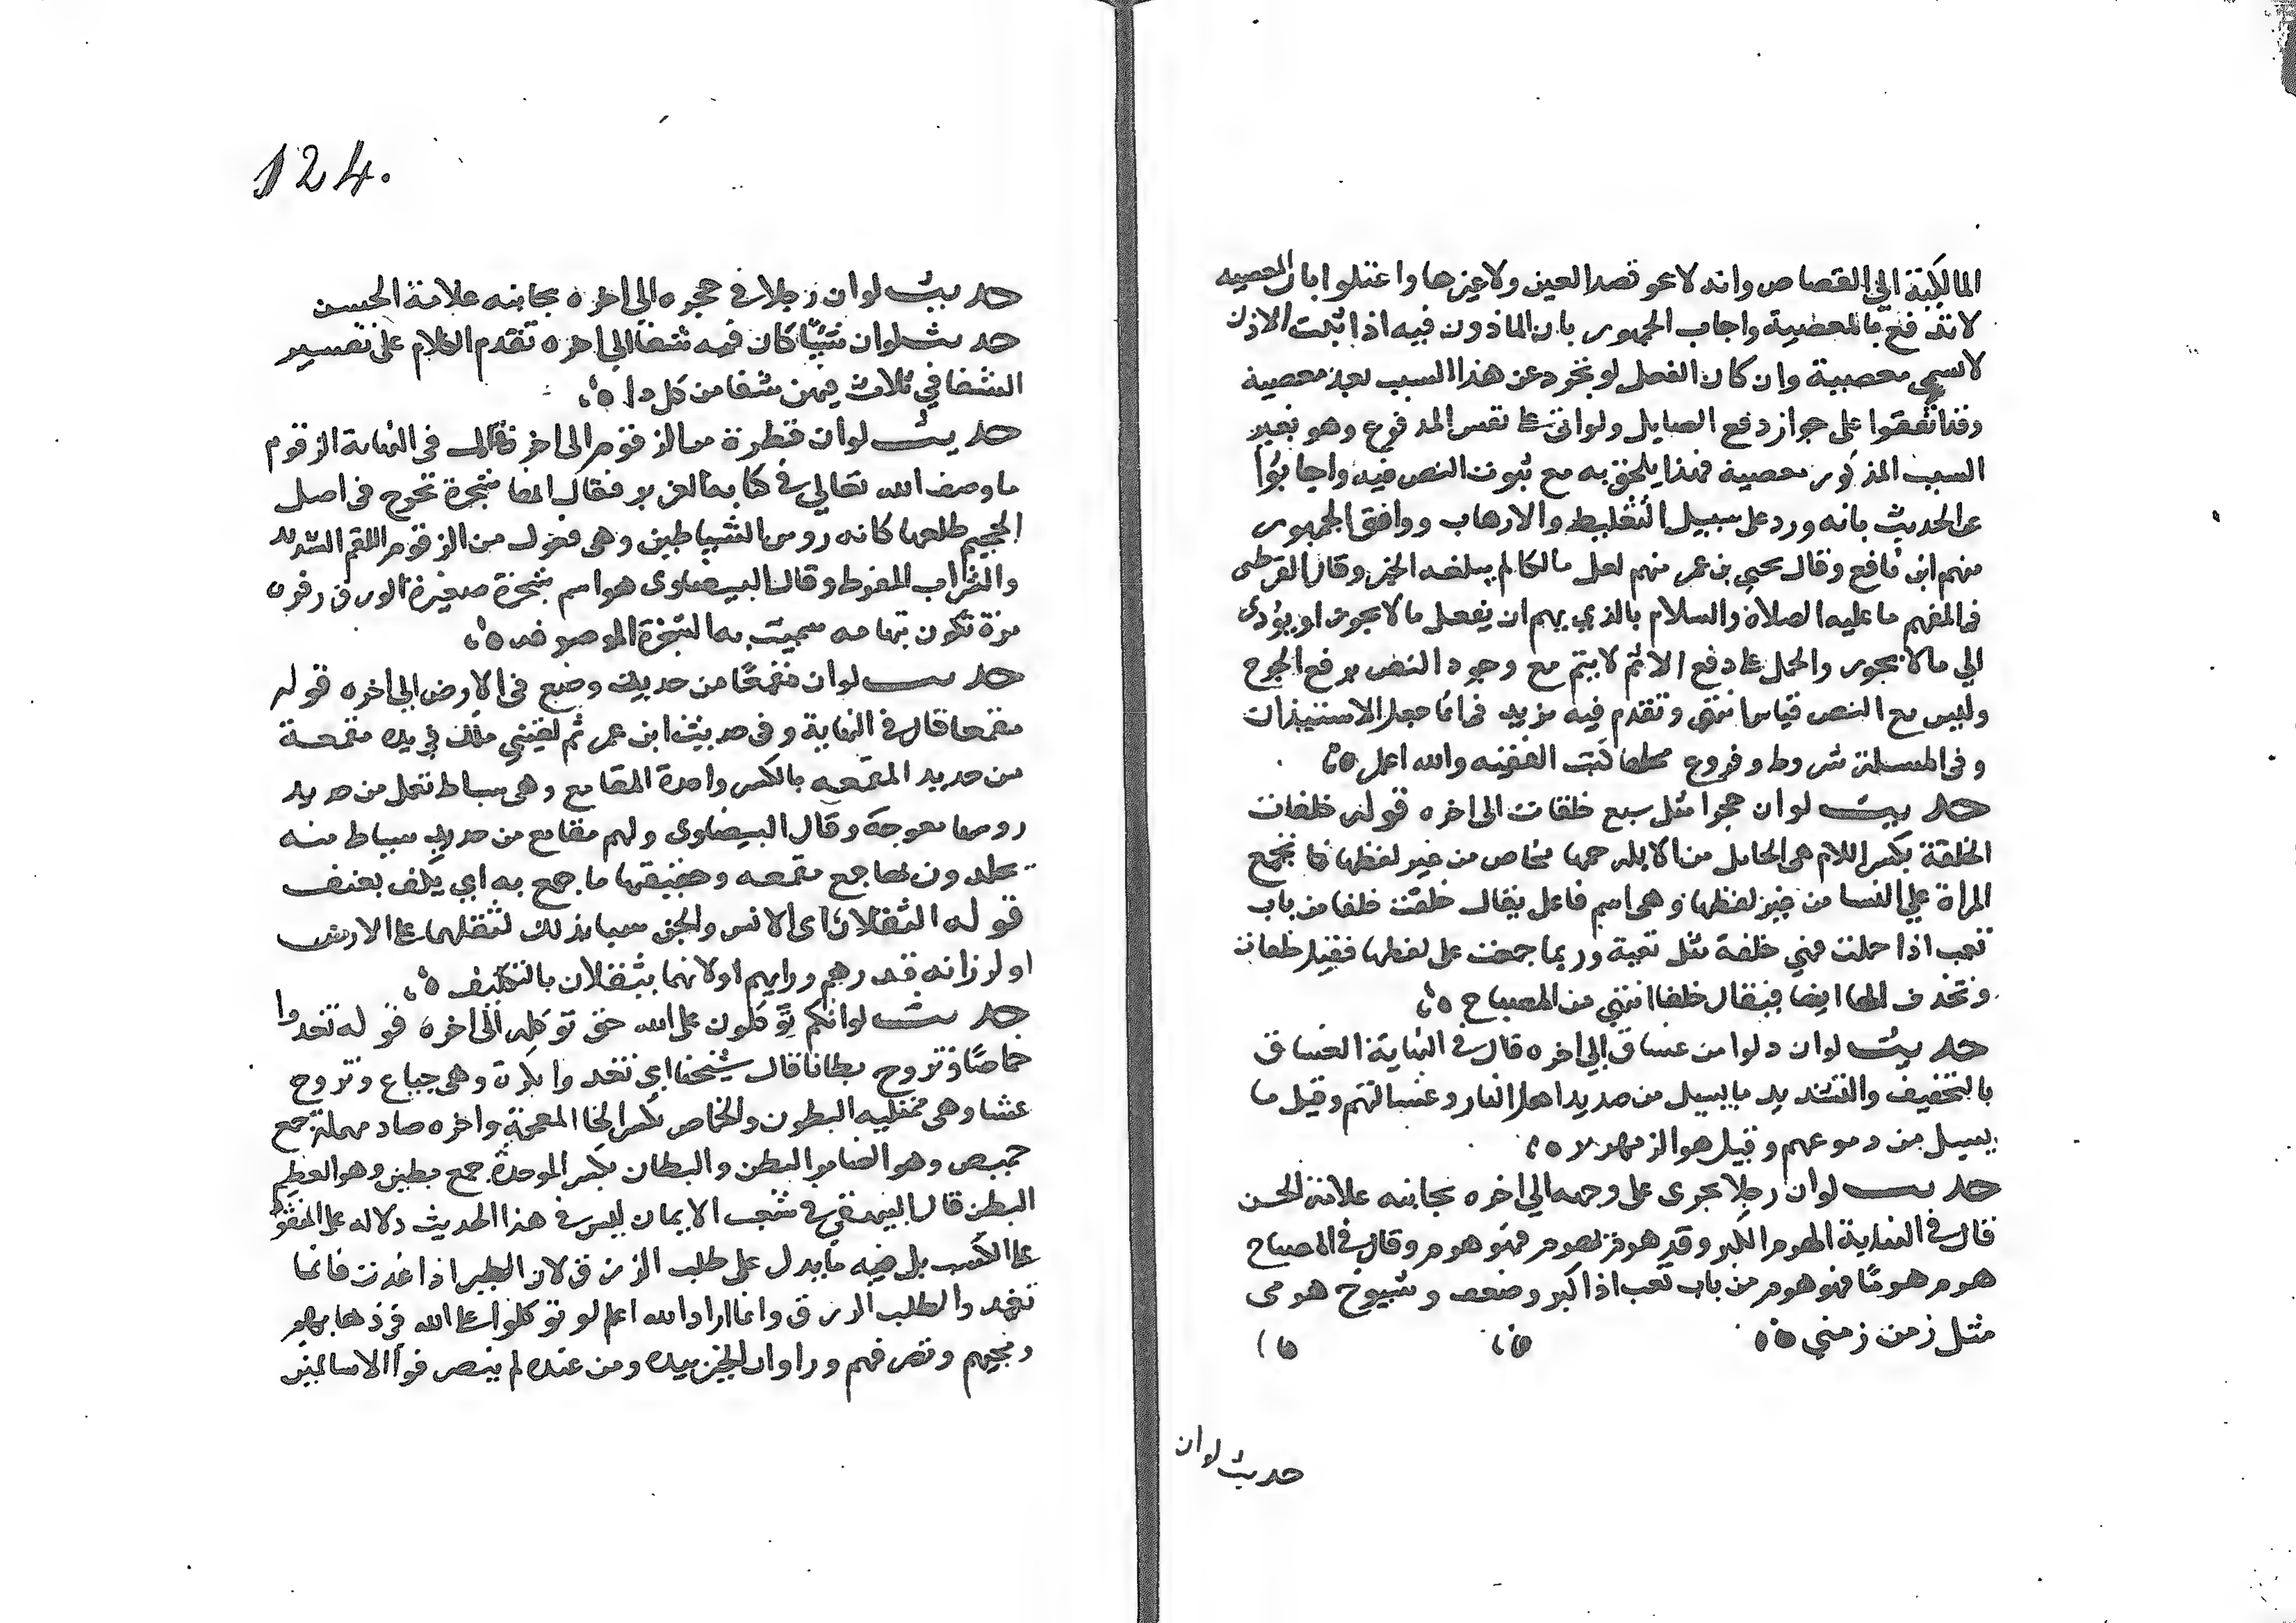 المالكية الي القصاص وانه لا يجوز قصد العين ولا غيرها واعتلوا بان المعصيه
لا تدفع بالمعصية واجاب الجمهور بان الماذون فيه اذا ثبت الاذن
لا يسمي معصية وان كان الفعل لو تجرد عن هذا السبب يعد معصية
وقد اتفقوا على جواز دفع الصايل ولو اتى على نفس المدفوع وهو بغير
السبب المذكور معصية فهذا يلحق به مع ثبوت النص فيه واجابوا
عن الحديث بانه ورد على سبيل التغليط والارهاب ووافق الجمهور
منهم ابن نافع وقال يحيي بن عمر منهم لعل مالكا لم يبلغه الخبر وقال القرطبي
في المفهم ما عليه الصلاة والسلام بالذي يهم ان يفعل ما لا يجوز او يؤدى
الي ما لا يجوز والحمل على دفع الاثم لا يتم مع وجود النص برفع الحرج
وليس مع النص قياس انتهى وتقدم فيه مزيد في انما جعل الاستيذان
وفي المسلة شروط وفروع محلها كتب الفقه والله اعلم
حديث لو ان حجرا مثل سبع خلفات الى اخره قوله خلفات
الخلفة بكسر اللام هي الحامل من الابل وجمعها مخاض من غير لفظها كما تجمع
المراة علي النسا من غير لفظها وهي اسم فاعل يقال خلفت خلفا من باب
تعب اذا حملت فهي خلفة مثل تعبة وربما جمعت على لفظها فقيل خلفات
وتحذف الها ايضا فيقال خلف انتهي من المصباح
حديث لو ان دلوا من غساق الى اخره قال في النهاية الغساق
بالتخفيف والتشديد ما يسيل من صديد اهل النار وغسالتهم وقيل ما
يسيل من دموعهم وقيل هو الزمهرير
حديث لو ان رجلا يجرى على وجهه الى اخره بجانبه علامة الحسن
قال في النهاية الهرم الكبر وقد هرم يهرم فهو هرم وقال في المصباح
هرم هرما فهو هرم من باب تعب اذا كبر وضعف وشيوخ هرمى
مثل زمن زمني
حديث لو ان
124.
حديث لو ان رجلا في حجره الي اخره بجانبه علامة الحسن
حديث لو ان شيئا كان فيه شفا الى اخره تقدم الكلام على تفسير
الشفا في ثلاث فيهن شفا من كل دا
حديث لو ان قطرة من الزقوم الى اخره قال في النهاية الزقوم
ما وصف الله تعالى في كتابه العزيز فقال انها شجرة تخرج في اصل
الجحيم طلعها كانه روس الشياطين وهي فعول من الزقوم اللقم الشديد
والشراب المفرط وقال البيضاوى هو اسم شجرة صغيرة الورق دفرة
مرة تكون بتهامه سميت به الشجرة الموصوفه
حديث لو ان مقمعا من حديد وضع في الارض الى اخره قوله
مقمعا قال في النهاية وفي حديث ابن عمر ثم لقيني ملك في يده مقمعة
من حديد المقمعه بالكسر واحدة المقامع وهي سياط تعمل من حديد
روسها معوجة وقال البيضاوى ولهم مقامع من حديد سياط منه
يجلدون بها جمع مقمعه وحقيقتها ما يقمع به اي يكف بعنف
قوله الثقلان اى الانس والجن سميا بذلك لثقلهما على الارض
او لرزانة قدرهم ورايهم او لانهما يثقلان بالتكليف
حديث لو انكم توكلون على الله حق توكله الى اخره قوله تغدوا
خماصا وتروح بطانا قال شيخنا اي تغدوا بكرة وهي جياع وتروح
عشا وهي ممتليه البطون والخماص بكسر الخا المعجمة واخره صاد مهملة جمع
خميص وهو الضامر البطن والبطان بكسر الموحدة جمع بطين وهو العظيم
البطن قال البيهقي في شعب الايمان ليس في هذا الحديث دلاله على القعود
على الكسب بل فيه ما يدل على طلب الرزق لان الطير اذا غدت فانما
تغدوا لطلب الرزق وانما اراد والله اعلم لو توكلوا على الله في ذهابهم
ومجيهم وتصرفهم وراوا ان الخير بيده ومن عنده لم ينصرفوا الا سالمين